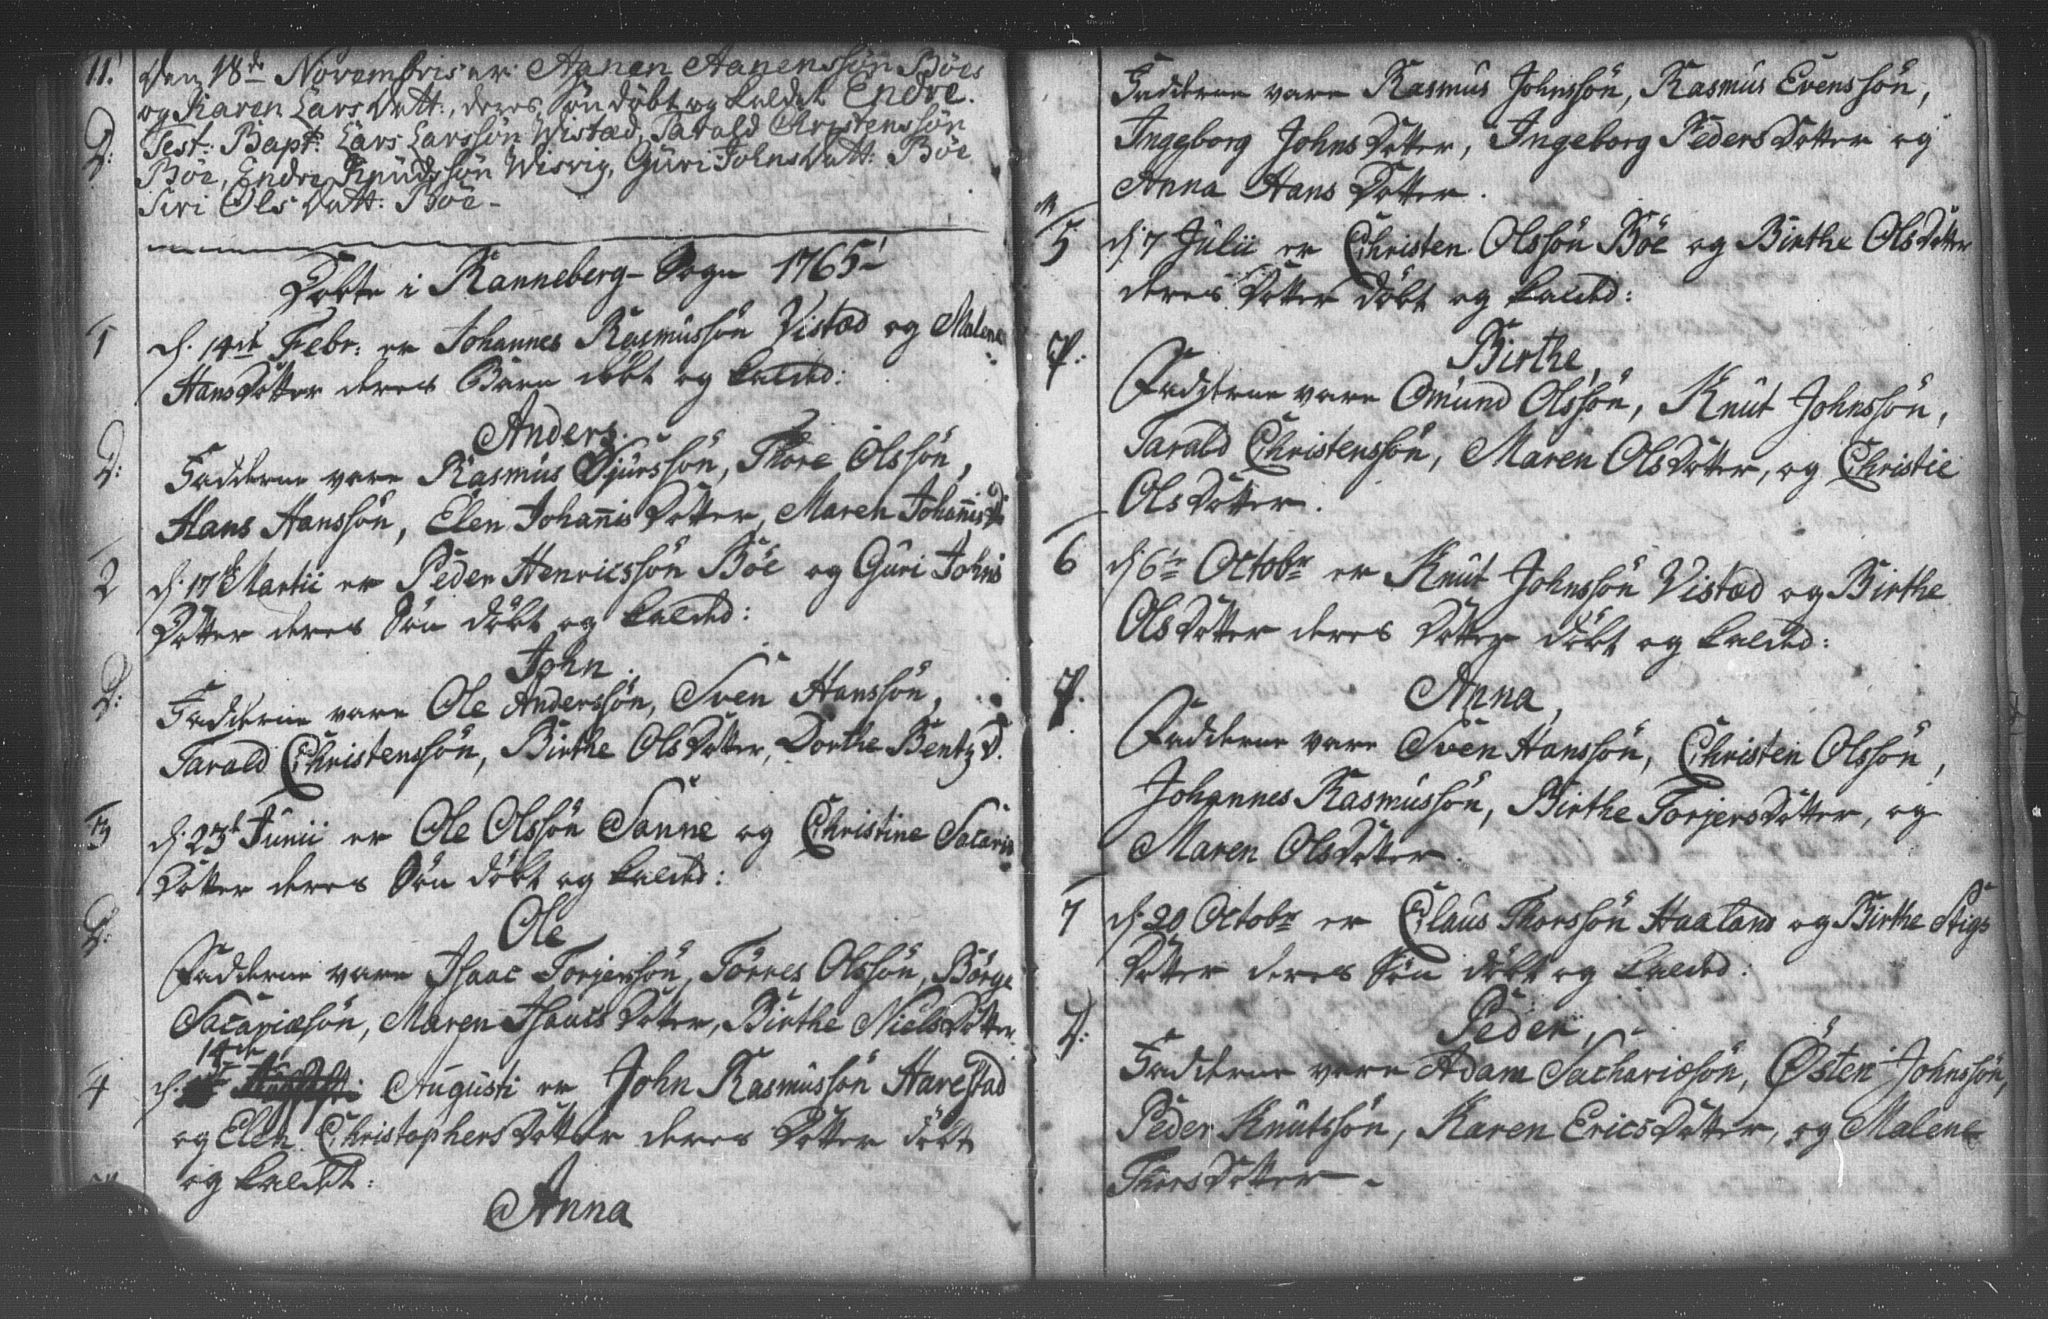 11. Den 18de Novembris er Aanen Aanenssøn Böes
og Karen Lars Datt:, deres Søn döbt og kaldet Endre.
D: Test: Bapt: Lars Larssön Wistæd, Tarald Christenssön
Böe, Endre Knudssön Wisvig, Güri Johns Datt: Böe
Siri Ols Datt: Böe-
Döbte i Ranneberg-Sogn 1765
1 d. 14de Febr: er Johannes Rasmüssön Vistæd og Malene
Hans Dotter deres Barn döbt og kalded:
Anders.
D: Fadderne vare Rasmüs Sjurssön, Thore Olssön,
Hans Hanssön, Elen Johannis Dotter, Maren Johannis D
2 d. 17de Martii er Peder Henricssön Böe og Güri Johns
Dotter deres Sön döbt og kalded:
John.
D: Fadderne vare Ole Anderssön, Sven Hanssön,
Tarald Christenssön, Birthe Ols Dotter, Dorthe Bentz D.
3 d. 23de Junii er Ole Olssön Sanne og Christine Sacariæ
Dotter deres Sön döbt og kalded:
Ole
D: Fadderne vare Isaac Torjerssön, Törres Olssön, Börge
Sacariæsön, Maren Isaacs Dotter, Birthe Niels Dotter
14de
4 d. Augusti er John Rasmüssön Harestad
og Elen Christophers Dotter deres Dotter döbt
og kaldet:
Anna
Fadderne vare Rasmüs Johnssön, Rasmüs Evenssön,
Ingeborg Johns Dotter, Ingeborg Peders Dotter og
Anna Hans Dotter.
5 d. 7 Julii er Christen Olssön Böe og Birthe Ols Dotter
deres Dotter döbt og kalded:
P: Birthe,
Fadderne vare Omünd Olssön, Knüt Johnssön,
Tarald Christenssön, Maren Ols Dotter, og Christie
Ols Dotter.
6 d. 6te Octobr er Knüt Johnssön Vistæd og Birthe
Ols Dotter deres Dotter döbt og kalded:
P. Anna,
Fadderne vare Sven Hanssön, Christen Olssön,
Johannes Rasmüssön, Birthe Torjers Dotter, og
Maren Ols Dotter.
7 d. 20 Octobr er Claus Thorssön Haaland og Birthe Stigs
Dotter deres Sön döbt og kalded:
Peder,
D: Fadderne vare Adam Sachariæsön, Østen Johnssön,
Peder Knütssön, Karen Erics Dotter, og Malene
Thors Dotter-